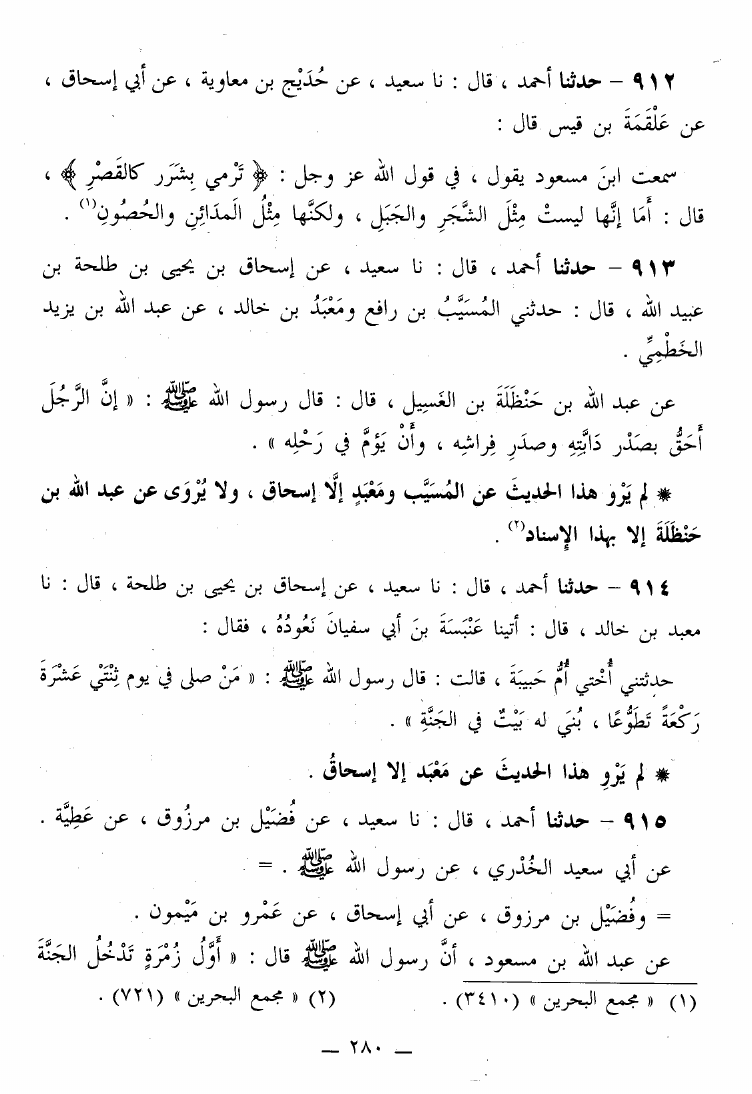 ٩١٢ – حدثنا أحمد ، قال : نا سعيد ، عن حُدَيْج بن معاوية ، عن أبي إسحاق ،
عن عَلْقَمَةَ بن قيس قال :
سمعت ابنَ مسعود يقول ، في قول الله عز وجل : ﴿ تَرْمي بِشَرَر كالقَصْرِ ﴾ ،
قال : أَمَا إنَّها ليستْ مِثْلَ الشَّجَرِ والجَبَلِ ، ولكنَّها مِثْلُ المدائِنِ والحُصُونِ(١) .
٩١٣ – حدثنا أحمد ، قال : نا سعيد ، عن إسحاق بن يحيى بن طلحة بن
عبيد الله ، قال : حدثني المُسَيَّبُ بن رافع ومَعْبَدُ بن خالد ، عن عبد الله بن يزيد
الخَطْمِيِّ .
عن عبد الله بن حَنْظَلَةَ بن الغَسِيل ، قال : قال رسول الله ﷺ : « إنَّ الرَّجُلَ
أَحَقُّ بصَدْر دَابَّتِهِ وصدرِ فِراشِه ، وأَنْ يَؤمَّ في رَحْلِه » .
٭ لم يَرْوِ هذا الحديثَ عن المُسَيَّب ومَعْبَدٍ إلَّا إسحاق ، ولا يُرْوَى عن عبد الله بن
حَنْظَلَةَ إلا بهذا الإِسناد(٢) .
٩١٤ – حدثنا أحمد ، قال : نا سعيد ، عن إسحاق بن يحيى بن طلحة ، قال : نا
معبد بن خالد ، قال : أتينا عَنْبَسَةَ بنَ أبي سفيانَ نَعُودُهُ ، فقال :
حدثتني أُخْتي أُمُّ حَبيبَةَ ، قالت : قال رسول الله ﷺ : « مَنْ صلى في يوم ثِنْتَيْ عَشْرَةَ
رَكْعَةً تَطَوُّعًا ، بُنيَ له بَيْتٌ في الجَنَّةِ » .
٭ لم يَرْوِ هذا الحديثَ عن مَعْبَد إلا إسحاقُ .
٩١٥ – حدثنا أحمد ، قال : نا سعيد ، عن فُضَيْل بن مرزُوق ، عن عَطِيَّة .
عن أبي سعيد الخُدْري ، عن رسول الله ﷺ . =
= وفُضَيْل بن مرزوق ، عن أبي إسحاق ، عن عَمْرو بن مَيْمون .
عن عبد الله بن مسعود ، أنَّ رسول الله ﷺ قال : « أَوَّلُ زُمْرَةٍ تَدْخُلُ الجَنَّةَ
(١) « مجمع البحرين » (٣٤١٠) . (٢) « مجمع البحرين » (٧٢١) .
– ٢٨٠ –